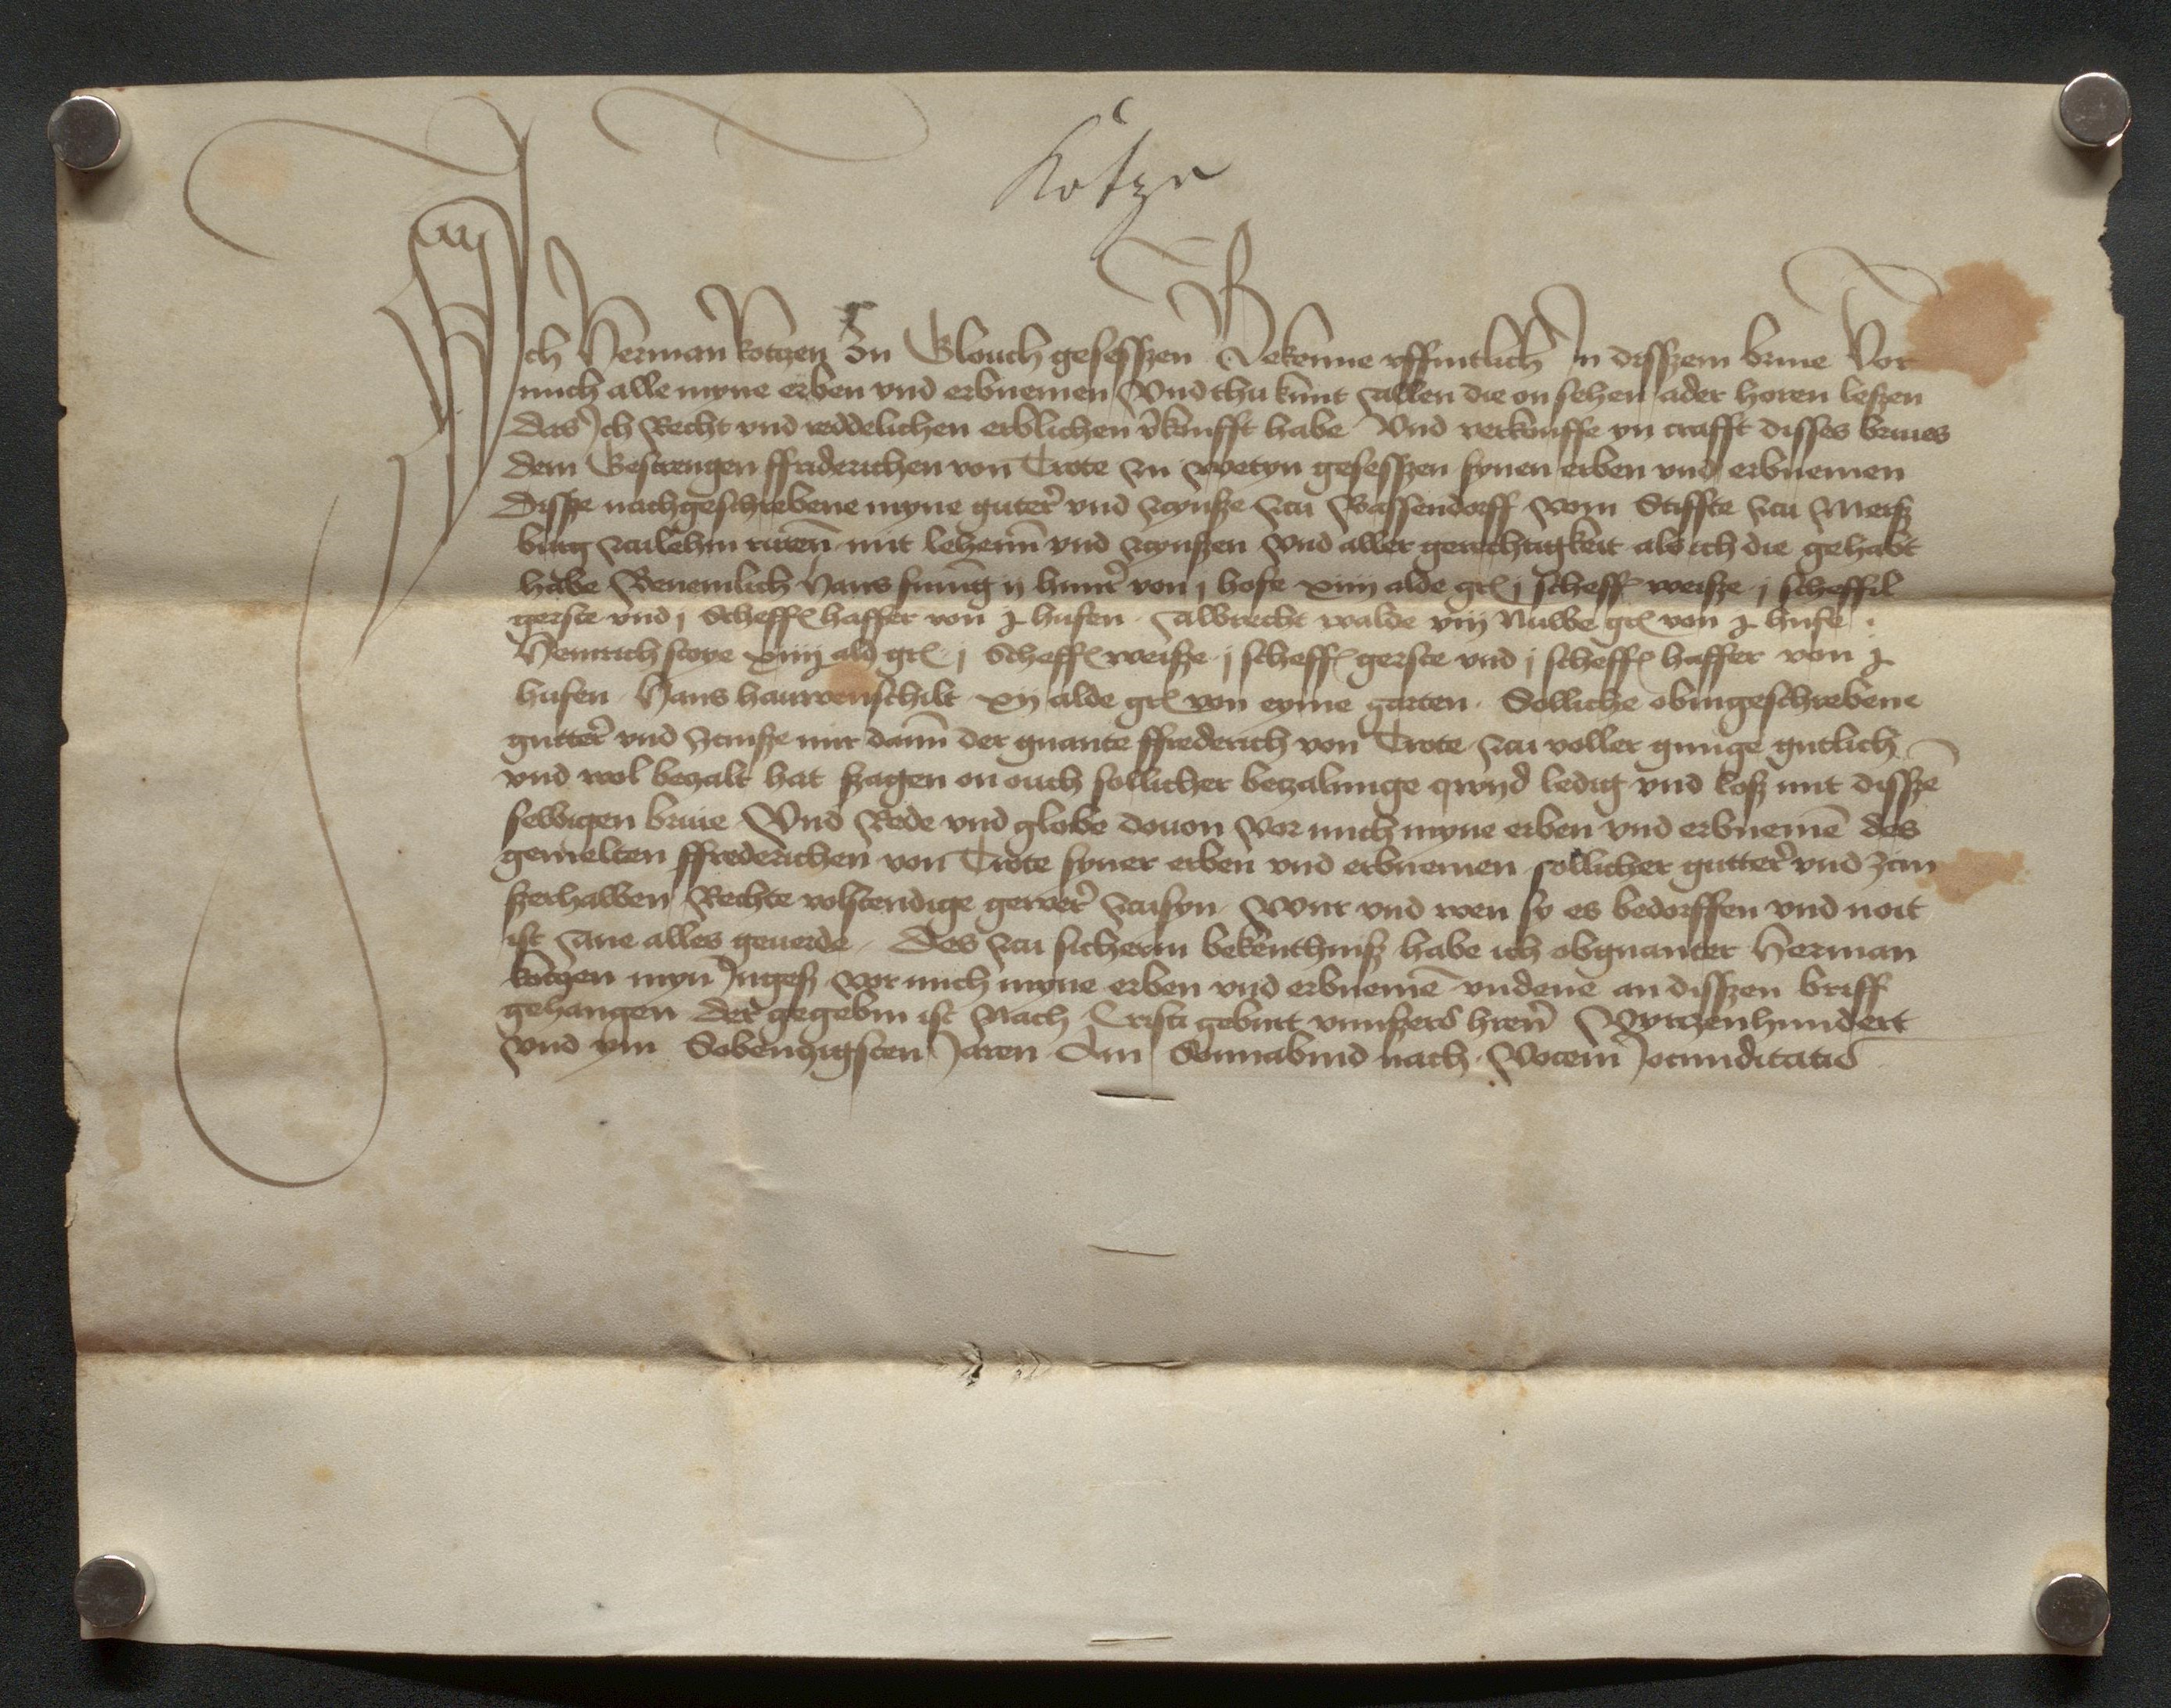 Kotze
Ich Herman kotzen Zu Glouch gesesszen Bekenne uffintlich In disszem briue Vor
mich alle myne erben vnd erbnemen Vnd thu kunt Allen die on sehen ader horen leszen
das Ich Recht vnd reddelichen erblichen v̄koufft habe Vnd verkouffe yn crafft disses briues
dem Gestrengen ffriderichen von Trote zu wetyn gesesszen synen erben vnd erbnemen
disße nachgeschrebene myne guter̄ vnd zcynße zcu Wassendorff vom Stiffte zcu Merß
burg zculehin mit lehenn̄ vnd zcynßen vnd aller gerechtigkeit als ich die gehabt
habe Benemlich Hans ij hunr̄ von j hofe xiiij alde gr̄ j scheff̄ weisze j scheffil
gerste vnd j Scheff̄ haffer von hufen Albrecht walde viij Nuwe gr̄ von hufe
Heinrich stoye xiiij ald gr̄ j Scheff̄ weisze j scheff̄ gerste vnd j scheff̄ haffer von
hufen Hans hauwenschilt xij alde gr̄ von eyme garten Solliche obingeschrebene
gutter̄ vnd zcinße mir dann̄ der gnante ffrederich von Trote zcu voller gnuge gutlich
vnd wol bezalt hat szagen on ouch sollicher betzalunge qwyd ledig vnd loß mit dissze̅
selbigen briue Vnd Rede vnd globe douon vor mich myne erben vnd erbneme̅ des
gemelten ffrederichen von Trote syner erben vnd erbnemen sollicher gutter̄ vnd zcin
szerhalben Rechte volstendige gewer̄ zcusyn wur vnd wen sy es bedorffen vnd noit
ist Ane alles geuerde Des zcu sicherm bekentniß habe ich obgnanter Herman
kotzen myn Ingeß vor mich myne erben vnd erbneme̅ vndene an disszen briff
gehangen der gegebin ist Nach Cristi geburt vnnszers hren̄ Virtzenhundert
vnd ym Sobenzigsten Jaren Am Sonnabind nach Vocem Jocunditatis